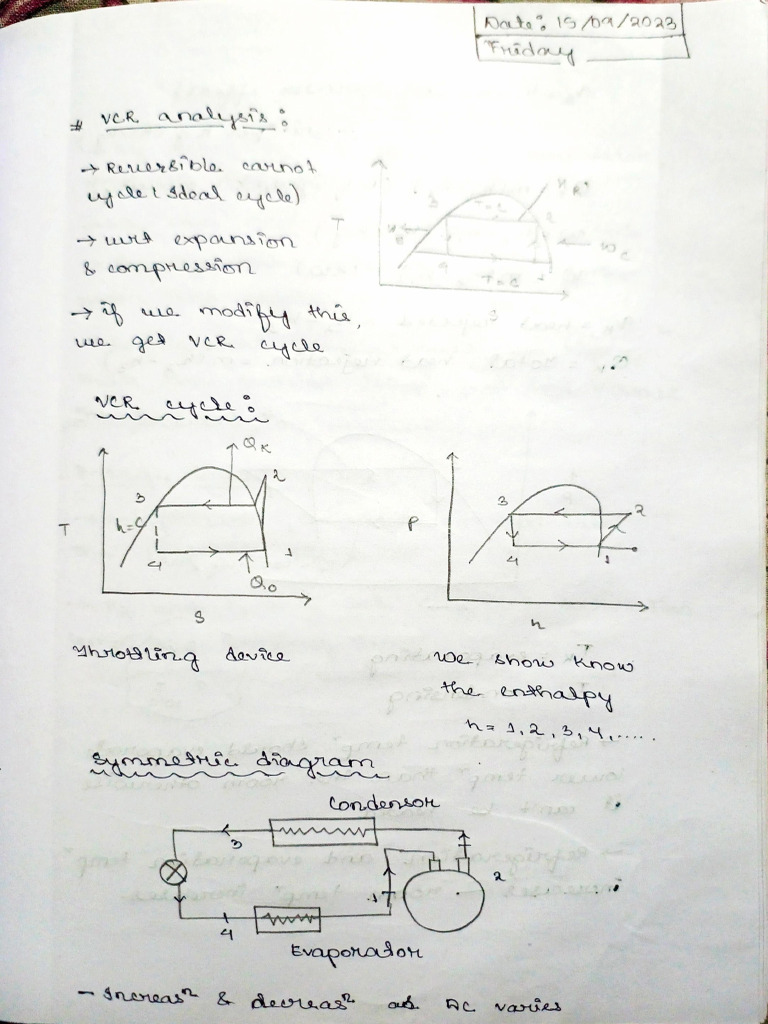 Date: 15/09/2023
Friday
# VCR analysis:
→ Reversible carnot
cycle (Ideal cycle)
→ wrt expansion
& compression
→ if we modify this,
we get VCR cycle
T
3
T=C
2
4
T=C
1
S
VCR cycle:
QK
2
3
h=C
T
4
1
Q0
S
P
3
2
4
1
h
Throttling device
We show know
the enthalpy
h = 1, 2, 3, 4, .....
Symmetric diagram
Condensor
3
1
2
4
Evaporator
- Increasⁿ & decreasⁿ as AC varies